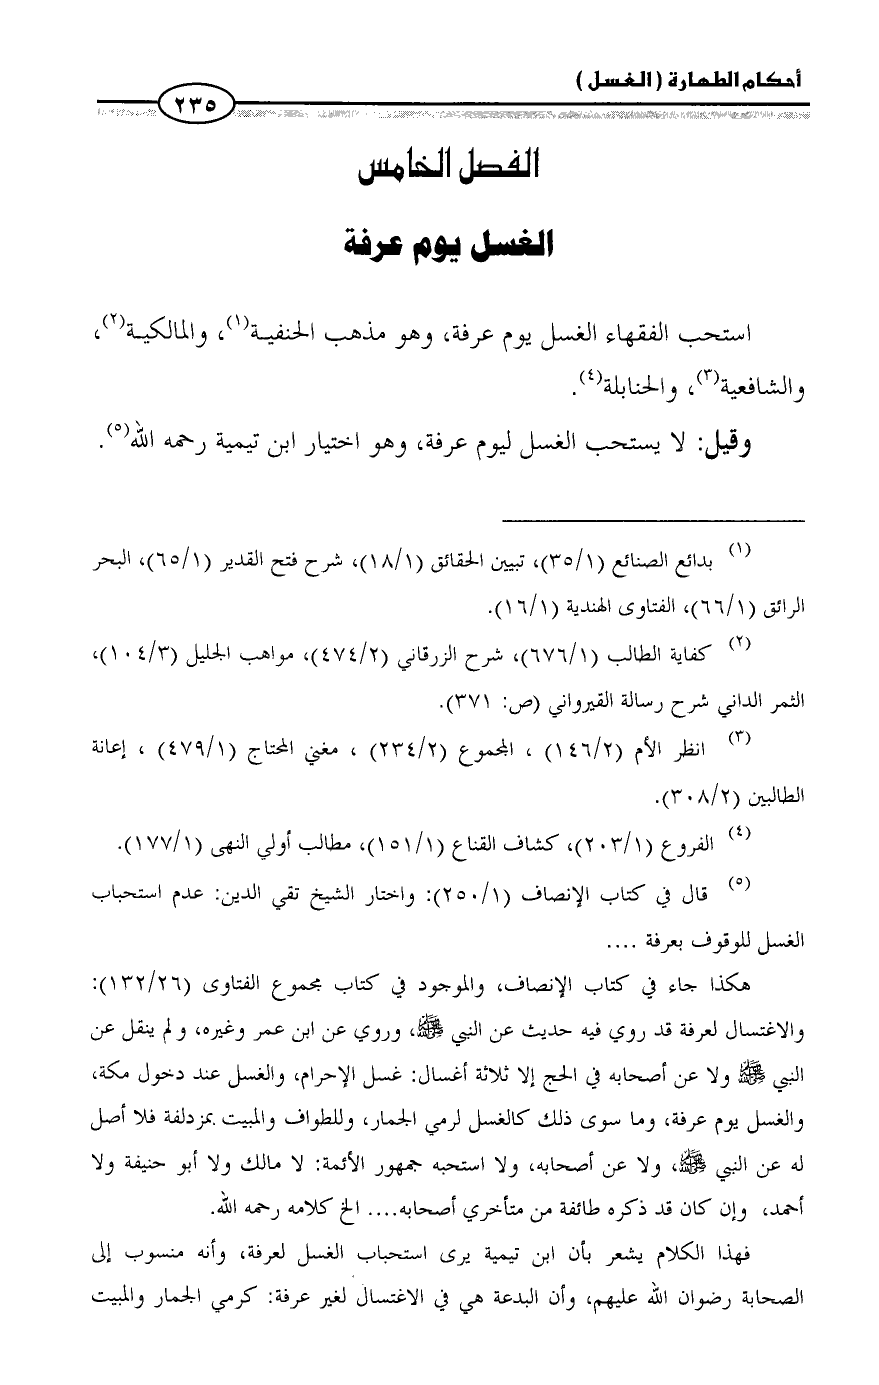 أحكام الطهارة (الغسل)
٢٣٥
الفصل الخامس
الغسل يوم عرفة
استحب الفقهاء الغسل يوم عرفة، وهو مذهب الحنفيـة(١)، والمالكيـة(٢)،
والشافعية(٣)، والحنابلة(٤).
وقيل: لا يستحب الغسل ليوم عرفة، وهو اختيار ابن تيمية رحمه الله(٥).
(١) بدائع الصنائع (٣٥/١)، تبيين الحقائق (١٨/١)، شرح فتح القدير (٦٥/١)، البحر
الرائق (٦٦/١)، الفتاوى الهندية (١٦/١).
(٢) كفاية الطالب (٦٧٦/١)، شرح الزرقاني (٤٧٤/٢)، مواهب الجليل (١٠٤/٣)،
الثمر الداني شرح رسالة القيرواني (ص: ٣٧١).
(٣) انظر الأم (١٤٦/٢) ، المجموع (٢٣٤/٢) ، مغني المحتاج (٤٧٩/١) ، إعانة
الطالبين (٣٠٨/٢).
(٤) الفروع (٢٠٣/١)، كشاف القناع (١٥١/١)، مطالب أولي النهى (١٧٧/١).
(٥) قال في كتاب الإنصاف (٢٥٠/١): واختار الشيخ تقي الدين: عدم استحباب
الغسل للوقوف بعرفة ....
هكذا جاء في كتاب الإنصاف، والموجود في كتاب مجموع الفتاوى (١٣٢/٢٦):
والاغتسال لعرفة قد روي فيه حديث عن النبي ﷺ، وروي عن ابن عمر وغيره، و لم ينقل عن
النبي ﷺ ولا عن أصحابه في الحج إلا ثلاثة أغسال: غسل الإحرام، والغسل عند دخول مكة،
والغسل يوم عرفة، وما سوى ذلك كالغسل لرمي الجمار، وللطواف والمبيت بمزدلفة فلا أصل
له عن النبي ﷺ، ولا عن أصحابه، ولا استحبه جمهور الأئمة: لا مالك ولا أبو حنيفة ولا
أحمد، وإن كان قد ذكره طائفة من متأخري أصحابه.... الخ كلامه رحمه الله.
فهذا الكلام يشعر بأن ابن تيمية يرى استحباب الغسل لعرفة، وأنه منسوب إلى
الصحابة رضوان الله عليهم، وأن البدعة هي في الاغتسال لغير عرفة: كرمي الجمار والمبيت